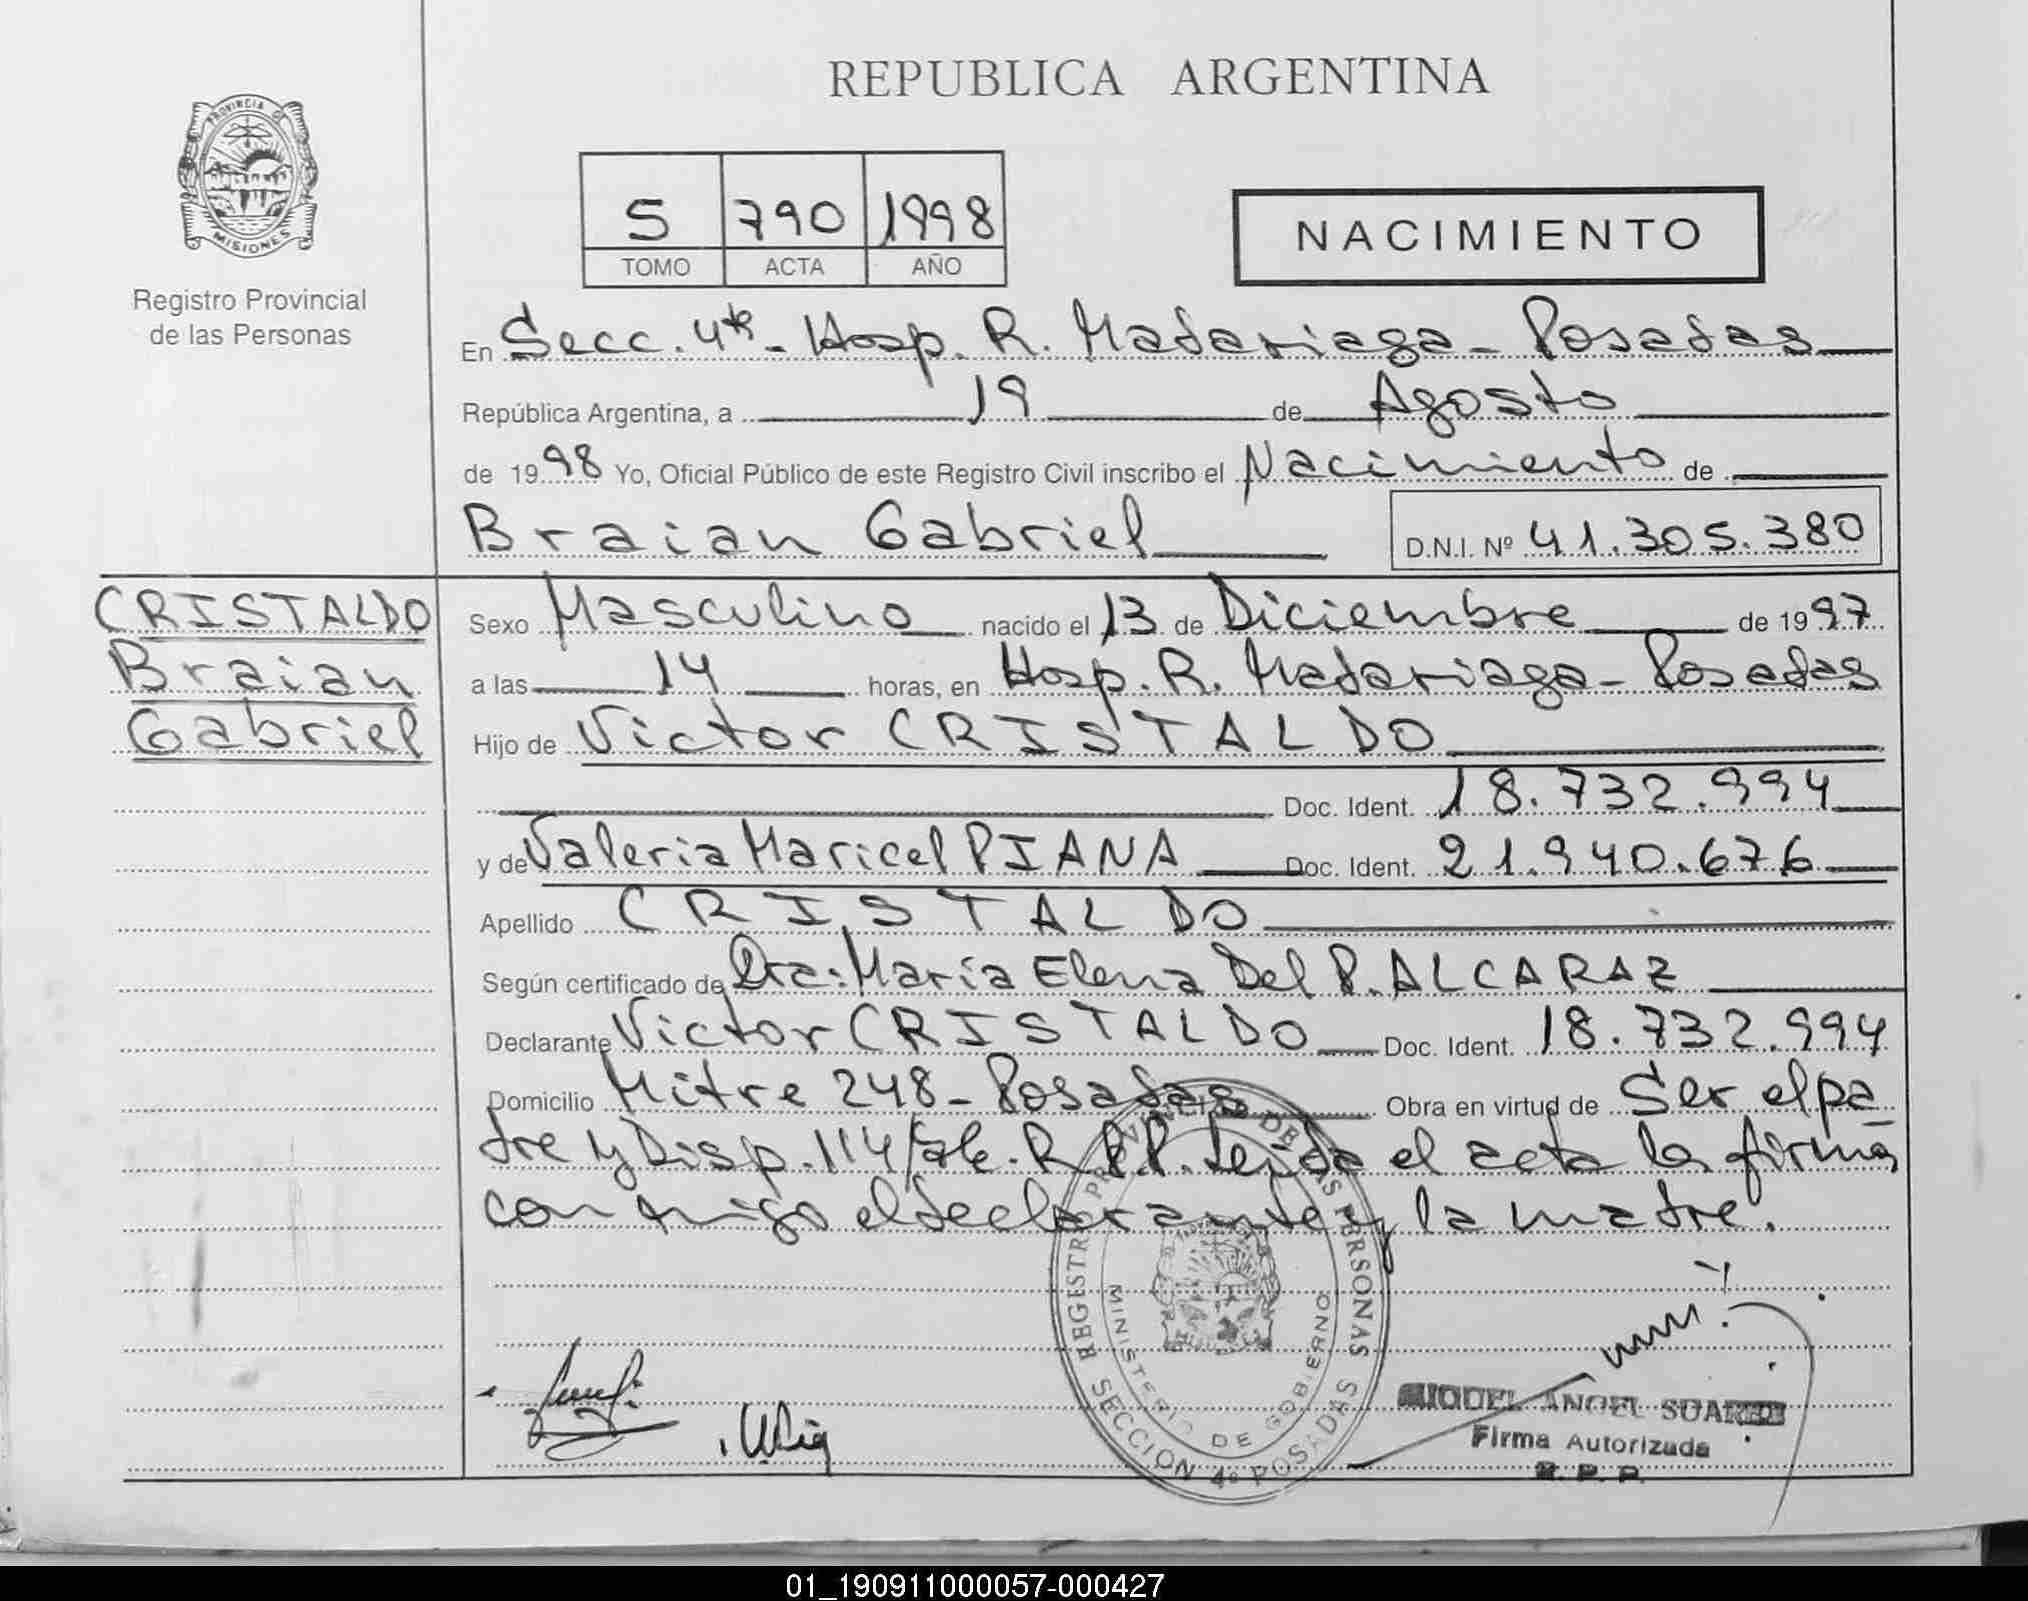 REPUBLICA ARGENTINA
PROVINCIA DE
MISIONES
Registro Provincial
de las Personas
5 790 1998
TOMO ACTA AÑO
NACIMIENTO
En Secc. 4ta - Hosp. R. Madariaga - Posadas
República Argentina, a 19 de Agosto
de 1998 Yo, Oficial Público de este Registro Civil inscribo el Nacimiento de
Braian Gabriel D.N.I. Nº 41.305.380
CRISTALDO
Braian
Gabriel
Sexo Masculino nacido el 13 de Diciembre de 1997
a las 14 horas, en Hosp. R. Madariaga - Posadas
Hijo de Victor CRISTALDO
Doc. Ident. 18.732.994
y de Valeria Maricel PIANA Doc. Ident. 21.940.676
Apellido CRISTALDO
Según certificado de Dra: María Elena Del P. ALCARAZ
Declarante Victor CRISTALDO Doc. Ident. 18.732.994
Domicilio Mitre 248 - Posadas Obra en virtud de Ser el pa
dre y Disp. 114/96. R.P.P. Leida el acta la firma
conmigo el declarante y la madre.
REGISTRO PROVINCIAL DE LAS PERSONAS
MINISTERIO DE GOBIERNO
SECCION 4º POSADAS
MIGUEL ANGEL SUAREZ
Firma Autorizada
R. P. P.
01_190911000057-000427